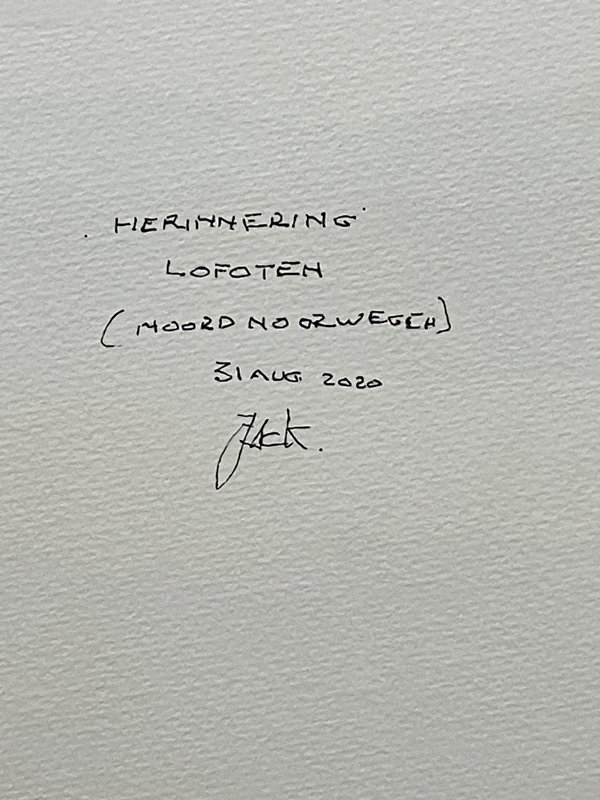 HERINNERING
LOFOTEN
(NOORD NOORWEGEN)
31 AUG. 2020
Jack.